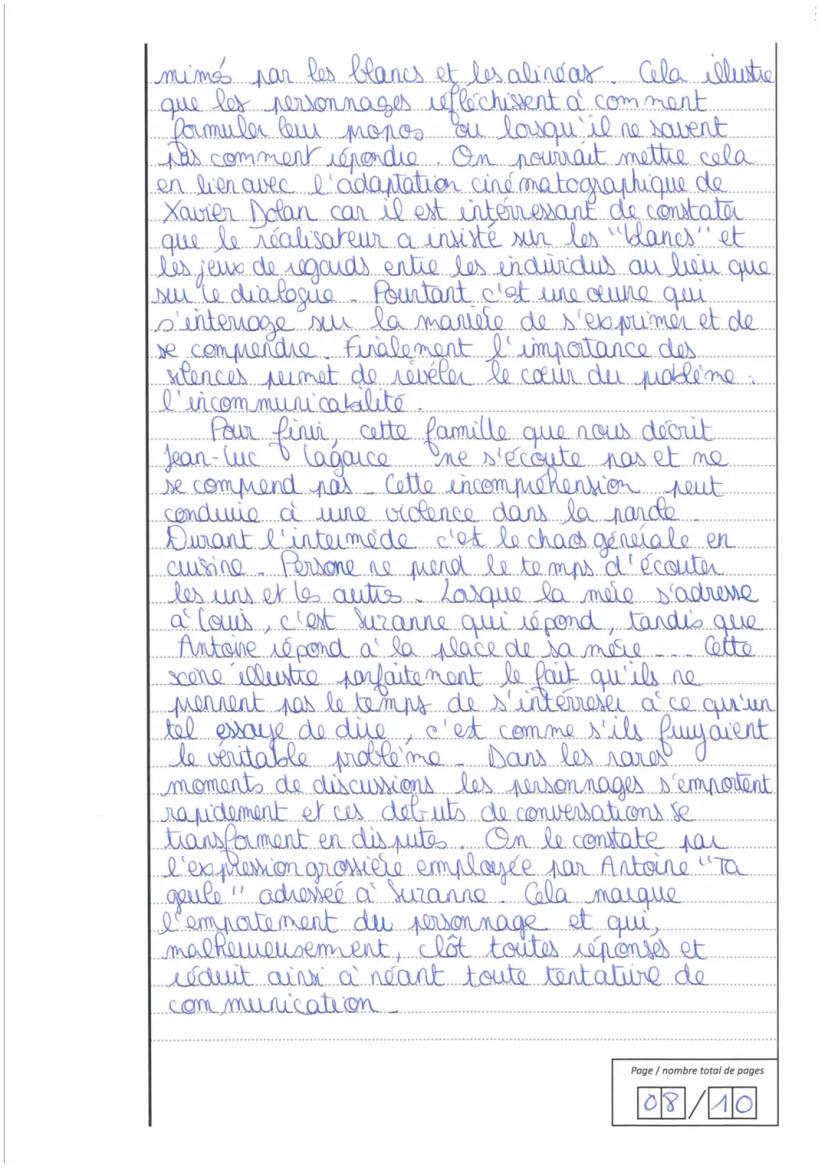 mimés par les blancs et les alinéas. Cela illustre
que les personnages réfléchissent à comment
formuler leur propos ou lorsqu'il ne savent
pas comment répondre. On pourrait mettre cela
en lien avec l'adaptation cinématographique de
Xavier Dolan car il est intérressant de constater
que le réalisateur a insisté sur les "blancs" et
les jeux de regards entre les individus au lieu que
sur le dialogue. Pourtant c'est une œuvre qui
s'interroge sur la manière de s'exprimer et de
se comprendre. Finalement l'importance des
silences permet de révéler le cœur du problème :
l'incommunicabilité.
Pour finir, cette famille que nous décrit
Jean-Luc Lagarce ne s'écoute pas et ne
se comprend pas. Cette incompréhension peut
conduire à une violence dans la parole.
Durant l'intermède c'est le chaos générale en
cuisine. Persone ne prend le temps d'écouter
les uns et les autres. Lorsque la mère s'adresse
à Louis, c'est Suzanne qui répond, tandis que
Antoine répond à la place de sa mère ... Cette
scène illustre parfaitement le fait qu'ils ne
prennent pas le temps de s'intérreser à ce qu'un
tel essaye de dire, c'est comme s'ils fuyaient
le véritable problème. Dans les rares
moments de discussions les personnages s'emportent
rapidement et ces débuts de conversations se
transforment en disputes. On le constate par
l'expression grossière employée par Antoine "Ta
geule" adressée à Suzanne. Cela marque
l'emportement du personnage et qui,
malheureusement, clôt toutes réponses et
réduit ainsi à néant toute tentative de
communication.
Page / nombre total de pages
08/10